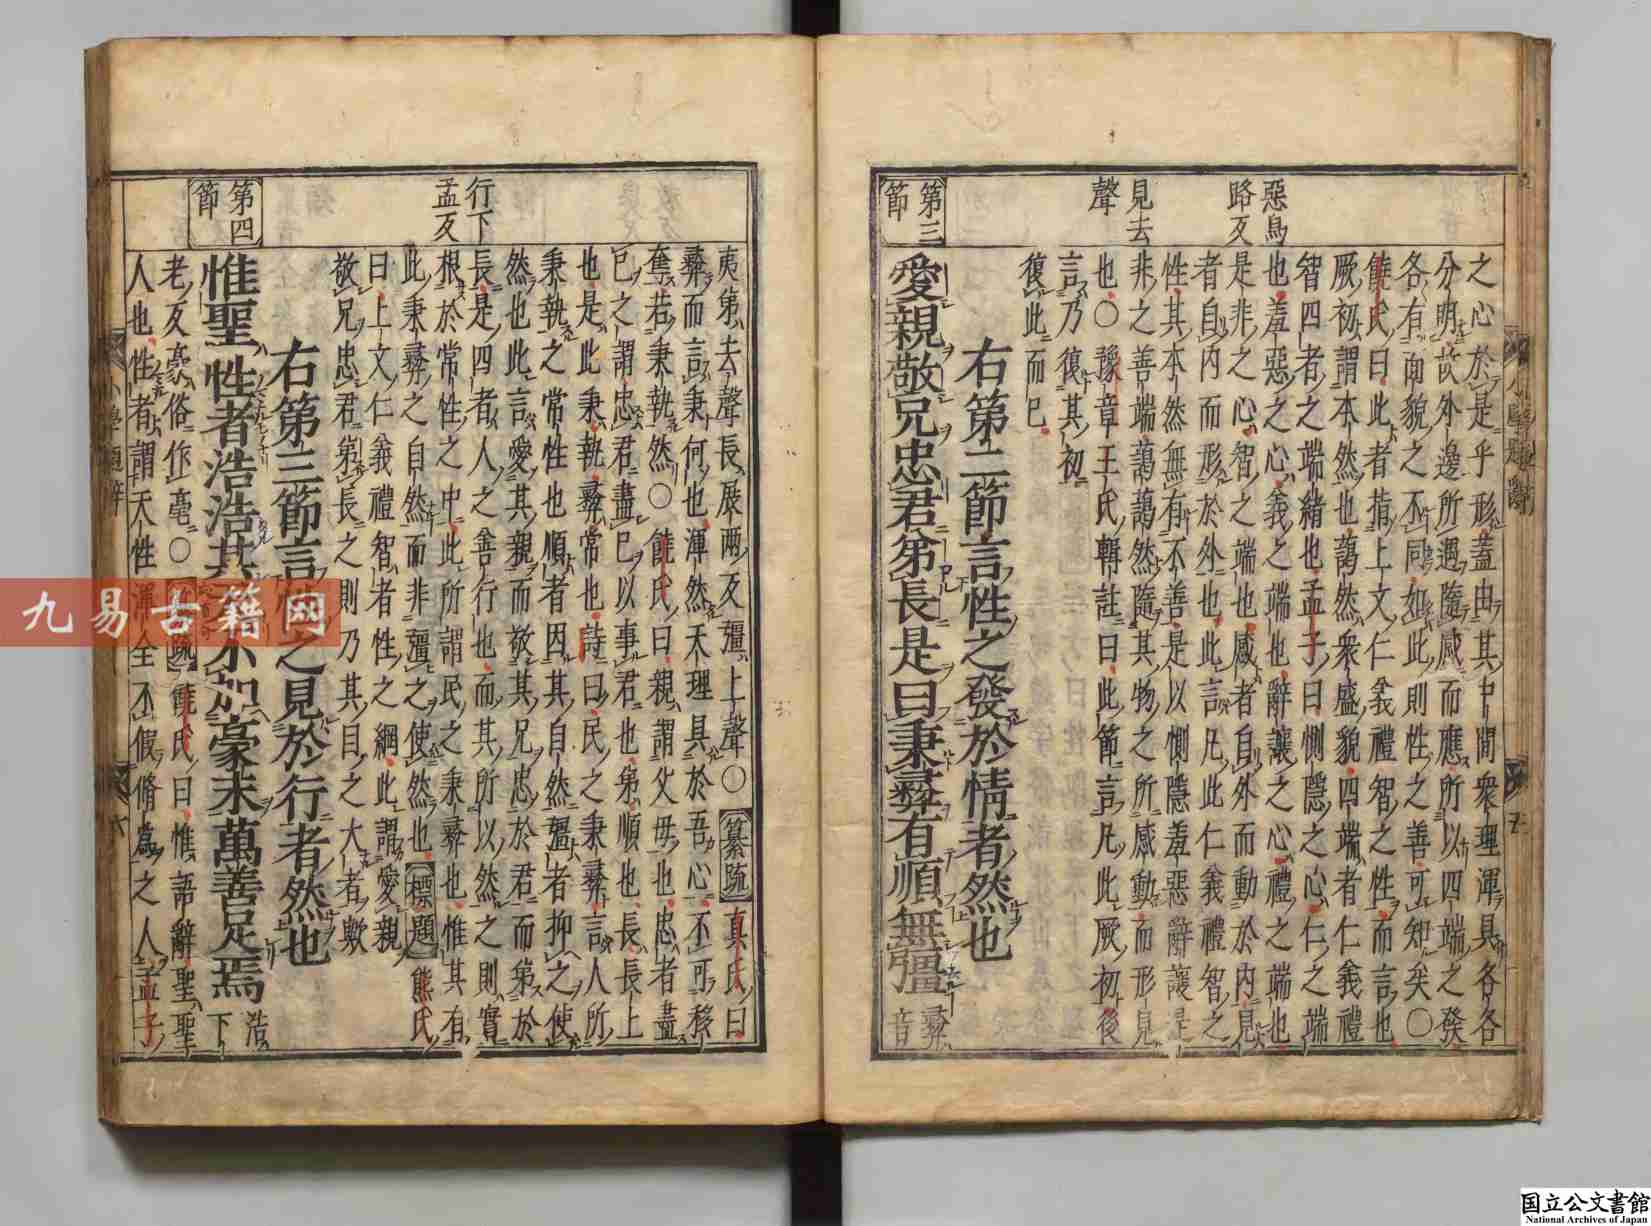 惡鳥
路反
見去
聲
第三
節
之心於是乎形蓋由其中間衆理渾具各各
分明故外邊所遇隨感而應所以四端之發
各有面貌之不同如此則性之善可知矣〇
饒氏曰此者指上文仁義禮智之性而言也
厥初謂本然也藹然衆盛貌四端者仁義禮
智四者之端緒也孟子曰惻隱之心仁之端
也羞惡之心義之端也辭讓之心禮之端也
是非之心智之端也感者自外而動於內見
者自內而形於外也此言凡此仁義禮智之
性其本然無有不善是以惻隱羞惡辭讓是
非之善端藹藹然隨其物之所感動而形見
也〇豫章王氏輯註曰此節言凡此厥初後
言乃復其初
復此而已
右第二節言性之發於情者然也
愛親敬兄忠君弟長是曰秉彝有順無彊彝
音
行下
孟反
第四
節
夷弟去聲長展兩反彊上聲〇纂疏真氏曰
彝而言秉何也渾然天理具於吾心不可移
奪若秉執然〇饒氏曰親謂父母也忠者盡
己之謂忠君盡己以事君也弟順也長長上
也是此秉執彝常也詩曰民之秉彝言人所
秉執之常性也順者因其自然彊者抑之使
然也此言愛其親而敬其兄忠於君而弟於
長是四者人之善行也而其所以然之則實
根於常性之中此所謂民之秉彝也惟其有
此秉彝之自然而非彊之使然也標題熊氏
曰上文仁義禮智者性之綱此謂愛親
敬兄忠君弟長之則乃其目之大者歟
右第三節言性之見於行者然也
惟聖性者浩浩其天不加毫末萬善足焉浩
下
老反毫俗作毫〇纂疏饒氏曰惟語辭聖聖
人也性者謂天性渾全不假脩爲之人孟子
小學題辭
五
小學題辭
六
九易古籍网
国立公文書館
National Archives of Japan